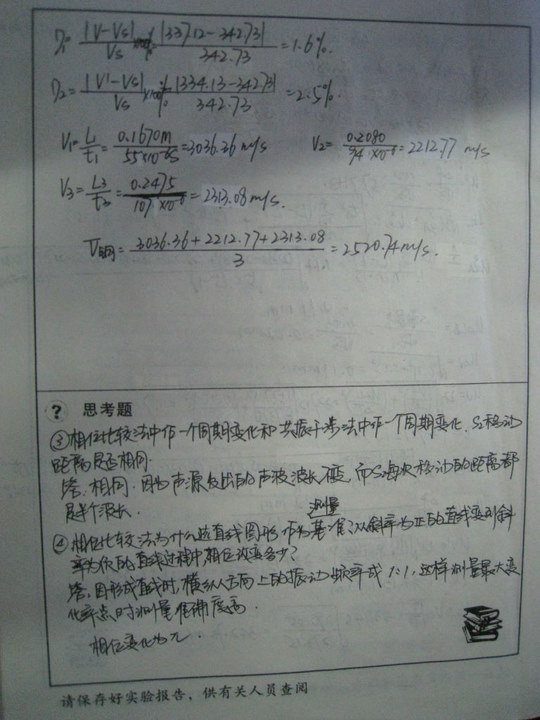 η₁= |V-Vs|/Vs ×100% = |337.12-342.73|/342.73 = 1.6%.
η₂= |V'-Vs|/Vs ×100% = |334.13-342.73|/342.73 = 2.5%.
V₁= L₁/t₁ = 0.1670m/55×10⁻⁶s = 3036.36 m/s V₂= 0.2080/94×10⁻⁶ = 2212.77 m/s
V₃= L₃/t₃ = 0.2475/107×10⁻⁶ = 2313.08 m/s.
= 3036.36+2212.77+2313.08/3 = 2520.74 m/s.
? 思考题
③相位比较法中作一个周期变化和共振干涉法中作一个周期变化, S₂移动
距离是否相同.
答: 相同. 因为声源发出的声波波长不变, 而S₂每次移动的距离都
是半个波长.
测量
④相位比较法为什么选直线图形作为基准?从斜率为正的直线变到斜
率为负的直线过程中相位改变多少?
答: 图形成直线时, 横纵方向上的振动频率成1:1, 这样测量最大变
化率点时测量准确度高.
相位变化为π.
请保存好实验报告，供有关人员查阅